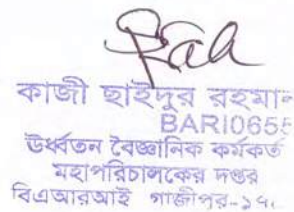 কাজী ছাইদুর রহমান
BARI0655
উর্ধ্বতন বৈজ্ঞানিক কর্মকর্ত
মহাপরিচালকের দপ্তর
বিএআরআই গাজীপুর-১৭